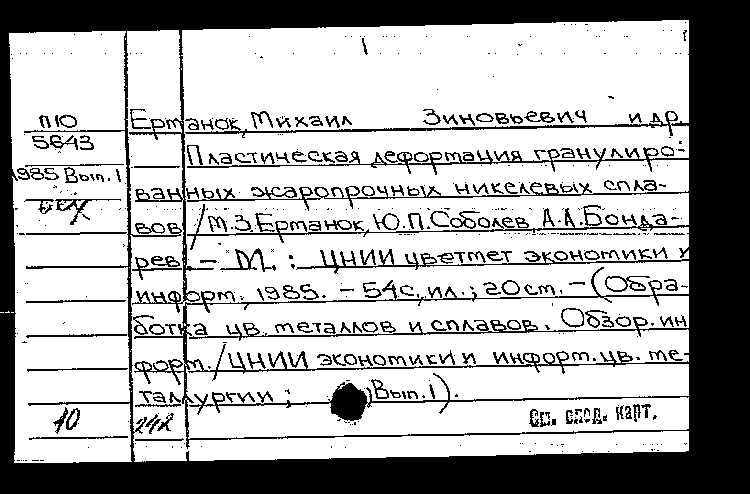 П10
5643
1985 Вып. 1
Ерманок, Михаил Зиновьевич и др
Пластическая деформация гранулиро-
ванных жаропрочных никелевых спла-
вов / М.З.Ерманок, Ю.П.Соболев, А.А.Бонда-
рев. - М. : ЦНИИ цветмет экономики и
информ., 1985. - 54с., ил.; 20см. - (Обра-
ботка цв. металлов и сплавов. Обзор. ин
форм. / ЦНИИ экономики и информ. цв. ме-
таллургии ; Вып. 1).
10 242 См. след. карт.